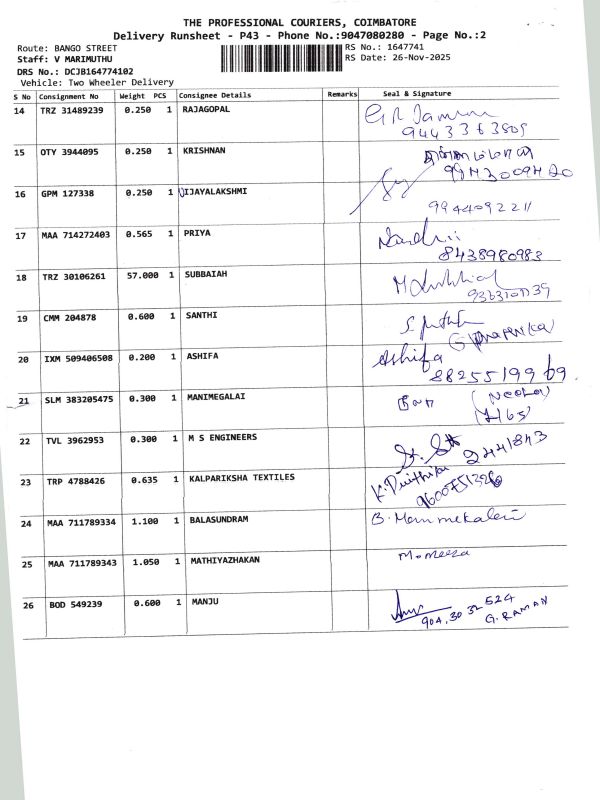 THE PROFESSIONAL COURIERS, COIMBATORE
Delivery Runsheet - P43 - Phone No.:9047080280 - Page No.:2
Route: BANGO STREET
RS No.: 1647741
Staff: V MARIMUTHU
RS Date: 26-Nov-2025
DRS No.: DCJB164774102
Vehicle: Two Wheeler Delivery
S No Consignment No Weight PCS Consignee Details Remarks Seal & Signature
14 TRZ 31489239 0.250 1 RAJAGOPAL
9443363505
15 OTY 3944095 0.250 1 KRISHNAN
9943009420
16 GPM 127338 0.250 1 VIJAYALAKSHMI
9944092211
17 MAA 714272403 0.565 1 PRIYA
8438980983
18 TRZ 30106261 57.000 1 SUBBAIAH
19 CMM 204878 0.600 1 SANTHI
20 IXM 509406508 0.200 1 ASHIFA Ashifa
8825519969
21 SLM 383205475 0.300 1 MANIMEGALAI
22 TVL 3962953 0.300 1 M S ENGINEERS
2441843
23 TRP 4788426 0.635 1 KALPARIKSHA TEXTILES
24 MAA 711789334 1.100 1 BALASUNDRAM
25 MAA 711789343 1.050 1 MATHIYAZHAKAN
26 BOD 549239 0.600 1 MANJU
904.30 32 524
G. RAMAN